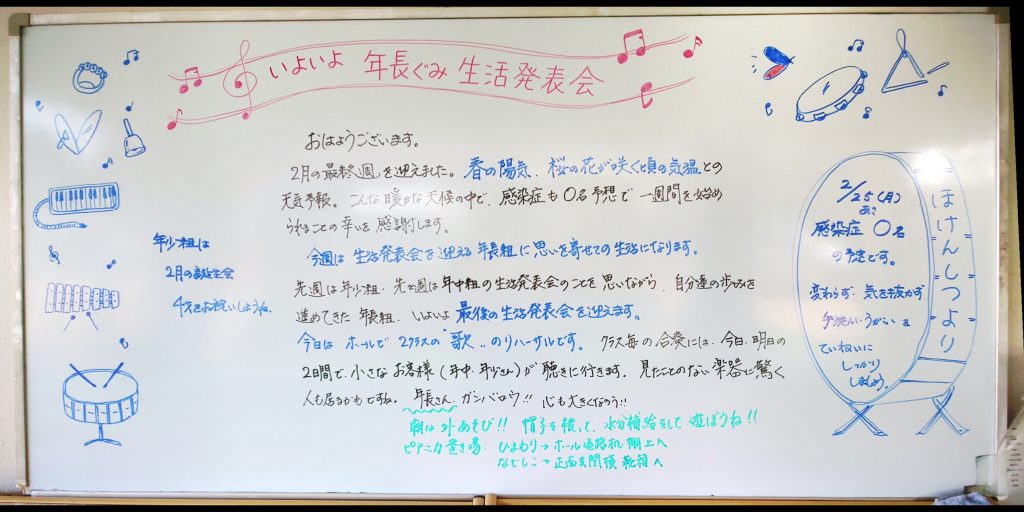 いよいよ 年長ぐみ 生活発表会
おはようございます。
2月の最終週を迎えました。春の陽気、桜の花が咲く頃の気温との
天気予報。こんな暖かな天候の中で、感染症も0名予想で一週間を始め
られることの幸いを感謝します。
今週は生活発表会を迎える年長組に思いを寄せての生活になります。
先週は年少組、先々週は年中組の生活発表会のことを思いながら、自分達の歩みを
進めてきた年長組、いよいよ最後の生活発表会を迎えます。
今日はホールで2クラスの"歌"のリハーサルです。クラス毎の合奏には、今日、明日の
2日間で、小さなお客様(年中、年少さん)が聴きに行きます。見たことのない楽器に驚く
人も居るかもですね。年長さん、ガンバロウ!! 心も大きくなろう!!
朝は外あそび!! 帽子を被って、水分補給をして遊ぼうね!!
ピアニカ置き場: ひまわり→ホール通路机、棚上へ
なでしこ→正面玄関横靴箱へ
年少組は
2月の誕生会
4才をお祝いしようね。
ほけんしつより
2/25(月)
感染症 0名
の予定です。
変わらず、気を抜かず
手洗い・うがいを
ていねいに
しっかり
しましょう。